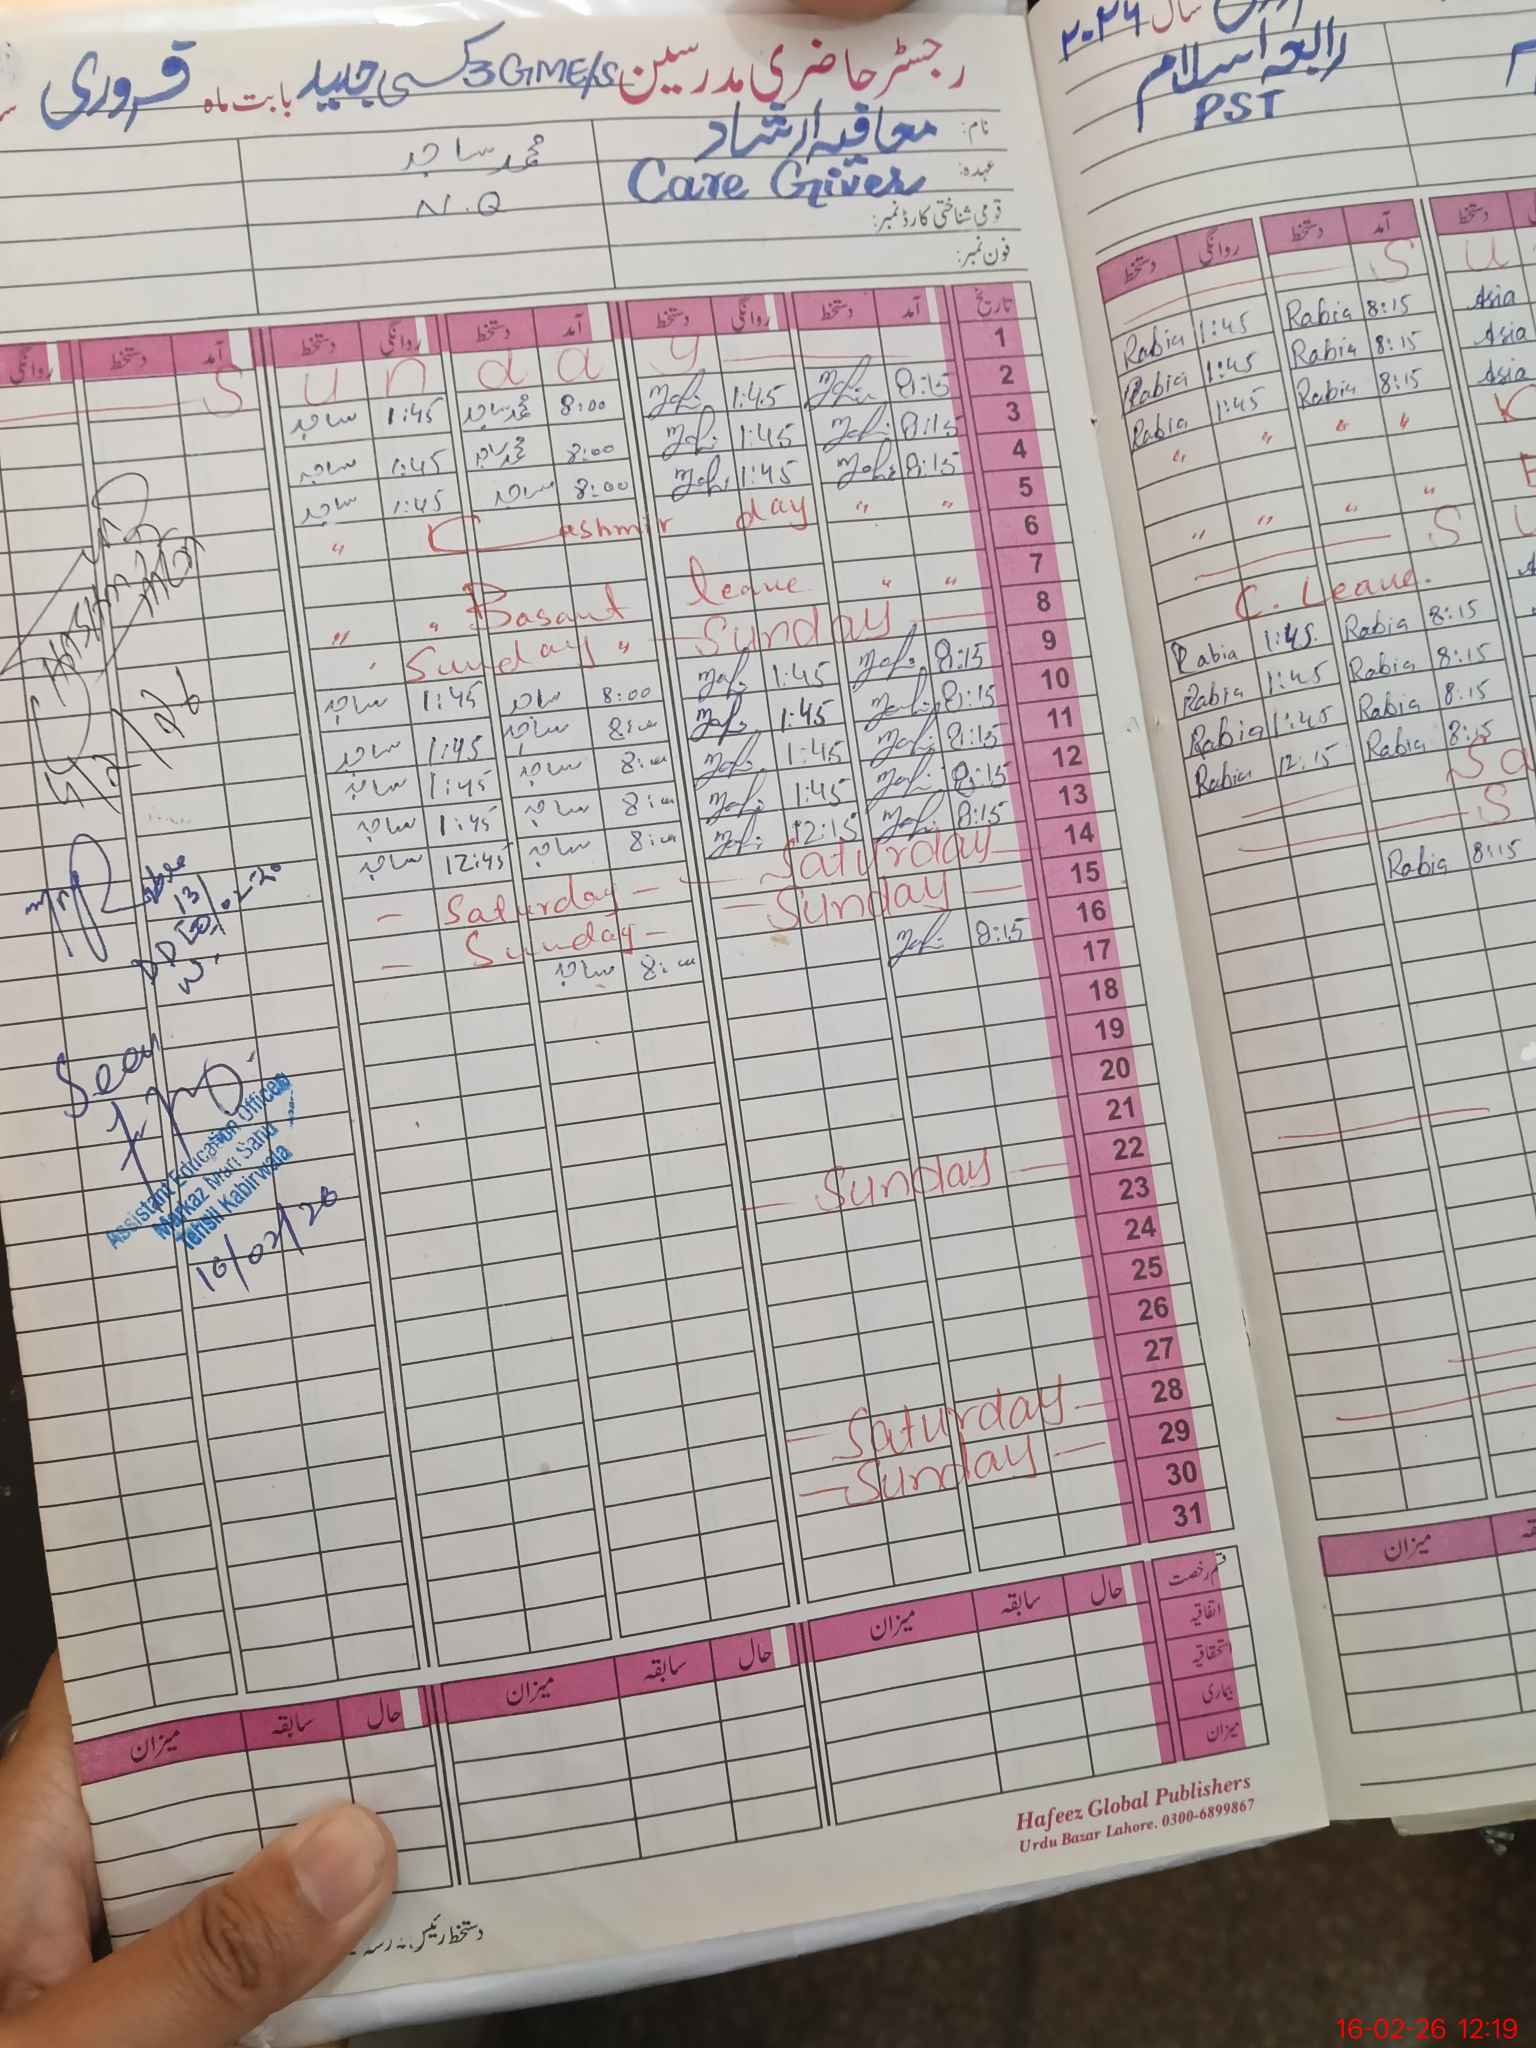 رجسٹر حاضری مدرسین 3GMEs/s کسی جدید بابت ماہ فروری
نام: معافیہ ارشاد
محمد ساجد
عہدہ: Care Giver
N.Q
قومی شناختی کارڈ نمبر:
فون نمبر:
تاریخ آمد دستخط روانگی دستخط آمد دستخط روانگی دستخط آمد دستخط روانگی
1 S u n d a y
2 8:15 1:45 8:00 محمد ساجد 1:45 ساجد
3 8:15 1:45 8:00 محمد ساجد 1:45 ساجد
4 8:15 1:45 8:00 ساجد 1:45 ساجد
5 " " Cashmir day "
6
7 " " Basant leave " "
8 Sunday Sunday "
9 8:15 1:45 8:00 ساجد 1:45 ساجد
10 8:15 1:45 8:00 ساجد 1:45 ساجد
11 8:15 1:45 8:00 ساجد 1:45 ساجد
12 8:15 1:45 8:00 ساجد 1:45 ساجد
13 8:15 12:15 8:00 ساجد 12:45 ساجد
14 Saturday Saturday
15 Sunday Sunday
16 8:15 8:00 ساجد
17
18
19
20
21
22 Sunday
23
24
25
26
27
28 Saturday
29 Sunday
30
31
4/2/26
13/02/26
Seen
Assistant Education Officer
Markaz Mari Sahu
Tehsil Kabirwala
16/02/26
قسم رخصت حال سابقہ میزان حال سابقہ میزان حال سابقہ میزان
اتفاقیہ
استحقاقیہ
بیماری
میزان
Hafeez Global Publishers
Urdu Bazar Lahore. 0300-6899867
دستخط رئیس مدرسہ
سال ۲۰۲۶
رابعہ اسلام
PST
آمد دستخط روانگی دستخط
دستخط
S u
8:15 Rabia 1:45 Rabia
Asia
8:15 Rabia 1:45 Rabia
Asia
8:15 Rabia 1:45 Rabia
Asia
" " " "
" " " "
S
C. Leave.
8:15 Rabia 1:45 Rabia
8:15 Rabia 1:45 Rabia
8:15 Rabia 1:45 Rabia
8:15 Rabia 12:15 Rabia
Sa
S
8:15 Rabia
میزان
16-02-26 12:19